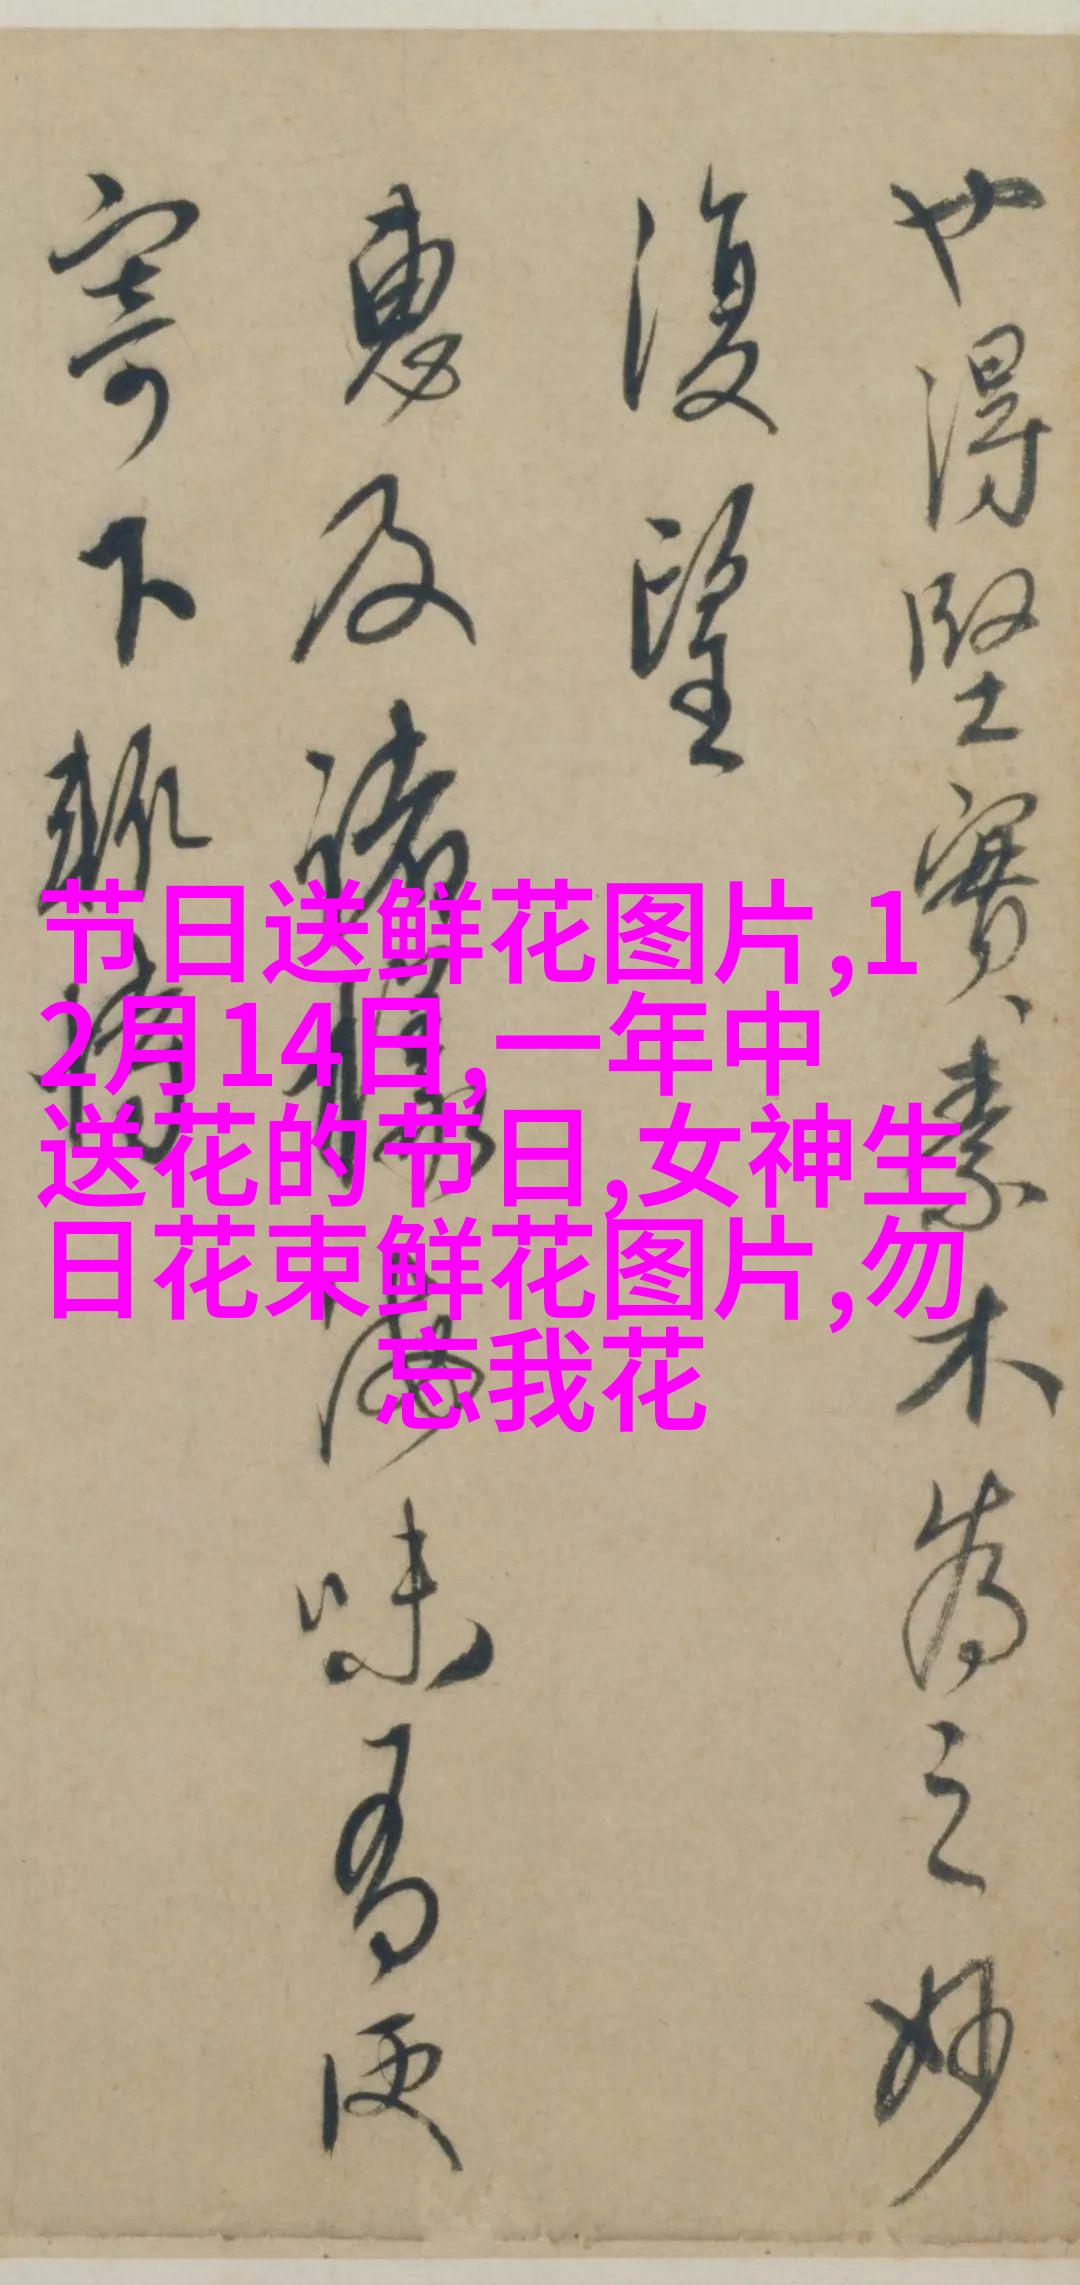 也得堅實素木為之妙
復望
惠及諸

味有便
寄下輒
节日送鲜花图片,1
2月14日,一年中
送花的节日,女神生
日花束鲜花图片,勿
忘我花